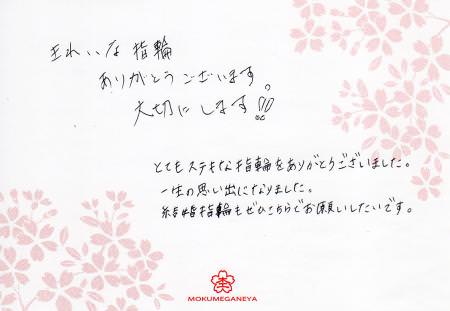 きれいな指輪
ありがとうございます。
大切にします!!
とてもステキな指輪をありがとうございました。
一生の思い出になりました。
結婚指輪もぜひこちらでお願いしたいです。
MOKUMEGANEYA